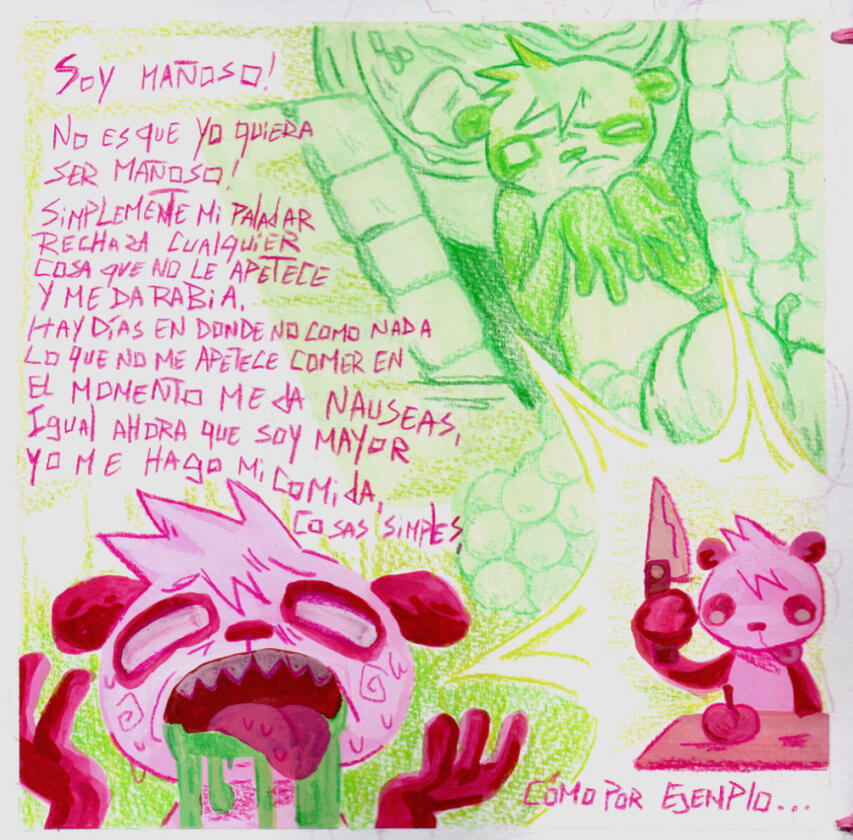 SOY MAÑOSO!
NO ES QUE YO QUIERA
SER MAÑOSO!
SIMPLEMENTE MI PALADAR
RECHAZA CUALQUIER
COSA QUE NO LE APETECE
Y ME DA RABIA.
HAY DÍAS EN DONDE NO COMO NADA
LO QUE NO ME APETECE COMER EN
EL MOMENTO ME dA NAUSEAS,
IGUAL AHORA QUE SOY MAYOR
YO ME HAGO MI COMIdA,
COSAS SIMPLES
CÓMO POR EJEMPLO...